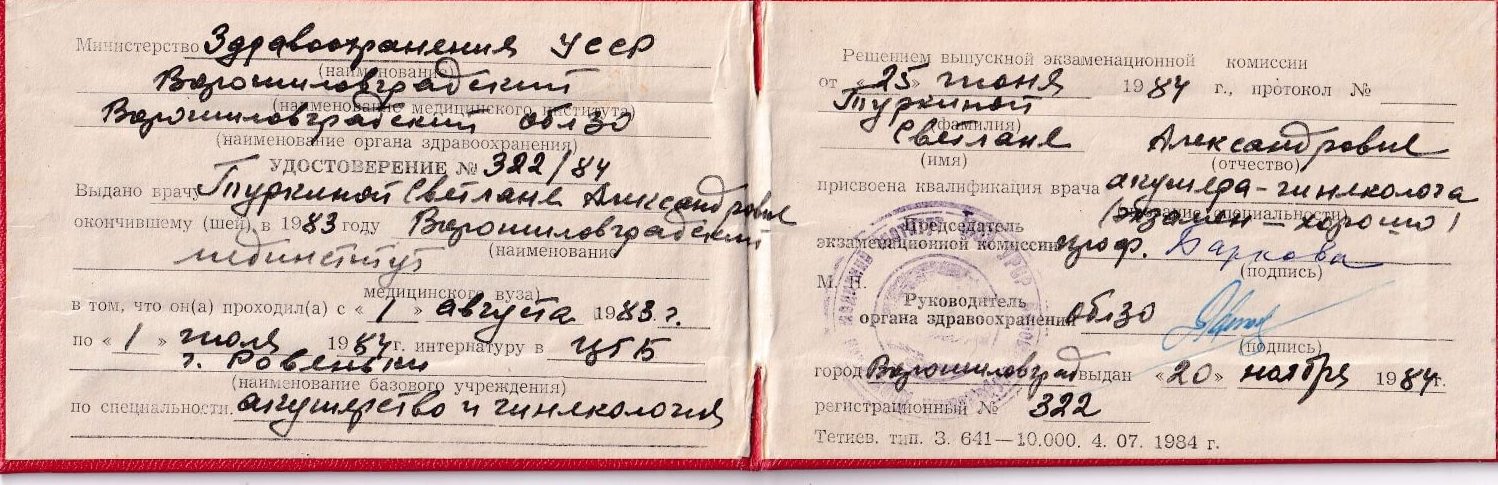 Министерство Здравоохранения УССР
(наименование)
Ворошиловградский
(наименование медицинского института)
Ворошиловградский облзо
(наименование органа здравоохранения)
УДОСТОВЕРЕНИЕ № 322/84
Выдано врачу Туркиной Светлане Александровне
окончившему (шей) в 1983 году Ворошиловградский
(наименование
мединститут
медицинского вуза)
в том, что он(а) проходил(а) с «1» августа 1983 г.
по «1» июля 1984 г. интернатуру в ЦГБ
г. Ровеньки
(наименование базового учреждения)
по специальности акушерство и гинекология
Решением выпускной экзаменационной комиссии
от «25» июня 1984 г., протокол №
Туркиной
(фамилия)
Светлане Александровне
(имя) (отчество)
присвоена квалификация врача акушера-гинеколога
(название специальности)
(экзамен - хорошо)
Председатель
экзаменационной комиссии проф. Баркова
(подпись)
М. П.
Руководитель
органа здравоохранения облзо
(подпись)
город Ворошиловград выдан «20» ноября 1984 г.
регистрационный № 322
Тетиев. тип. З. 641—10.000. 4. 07. 1984 г.